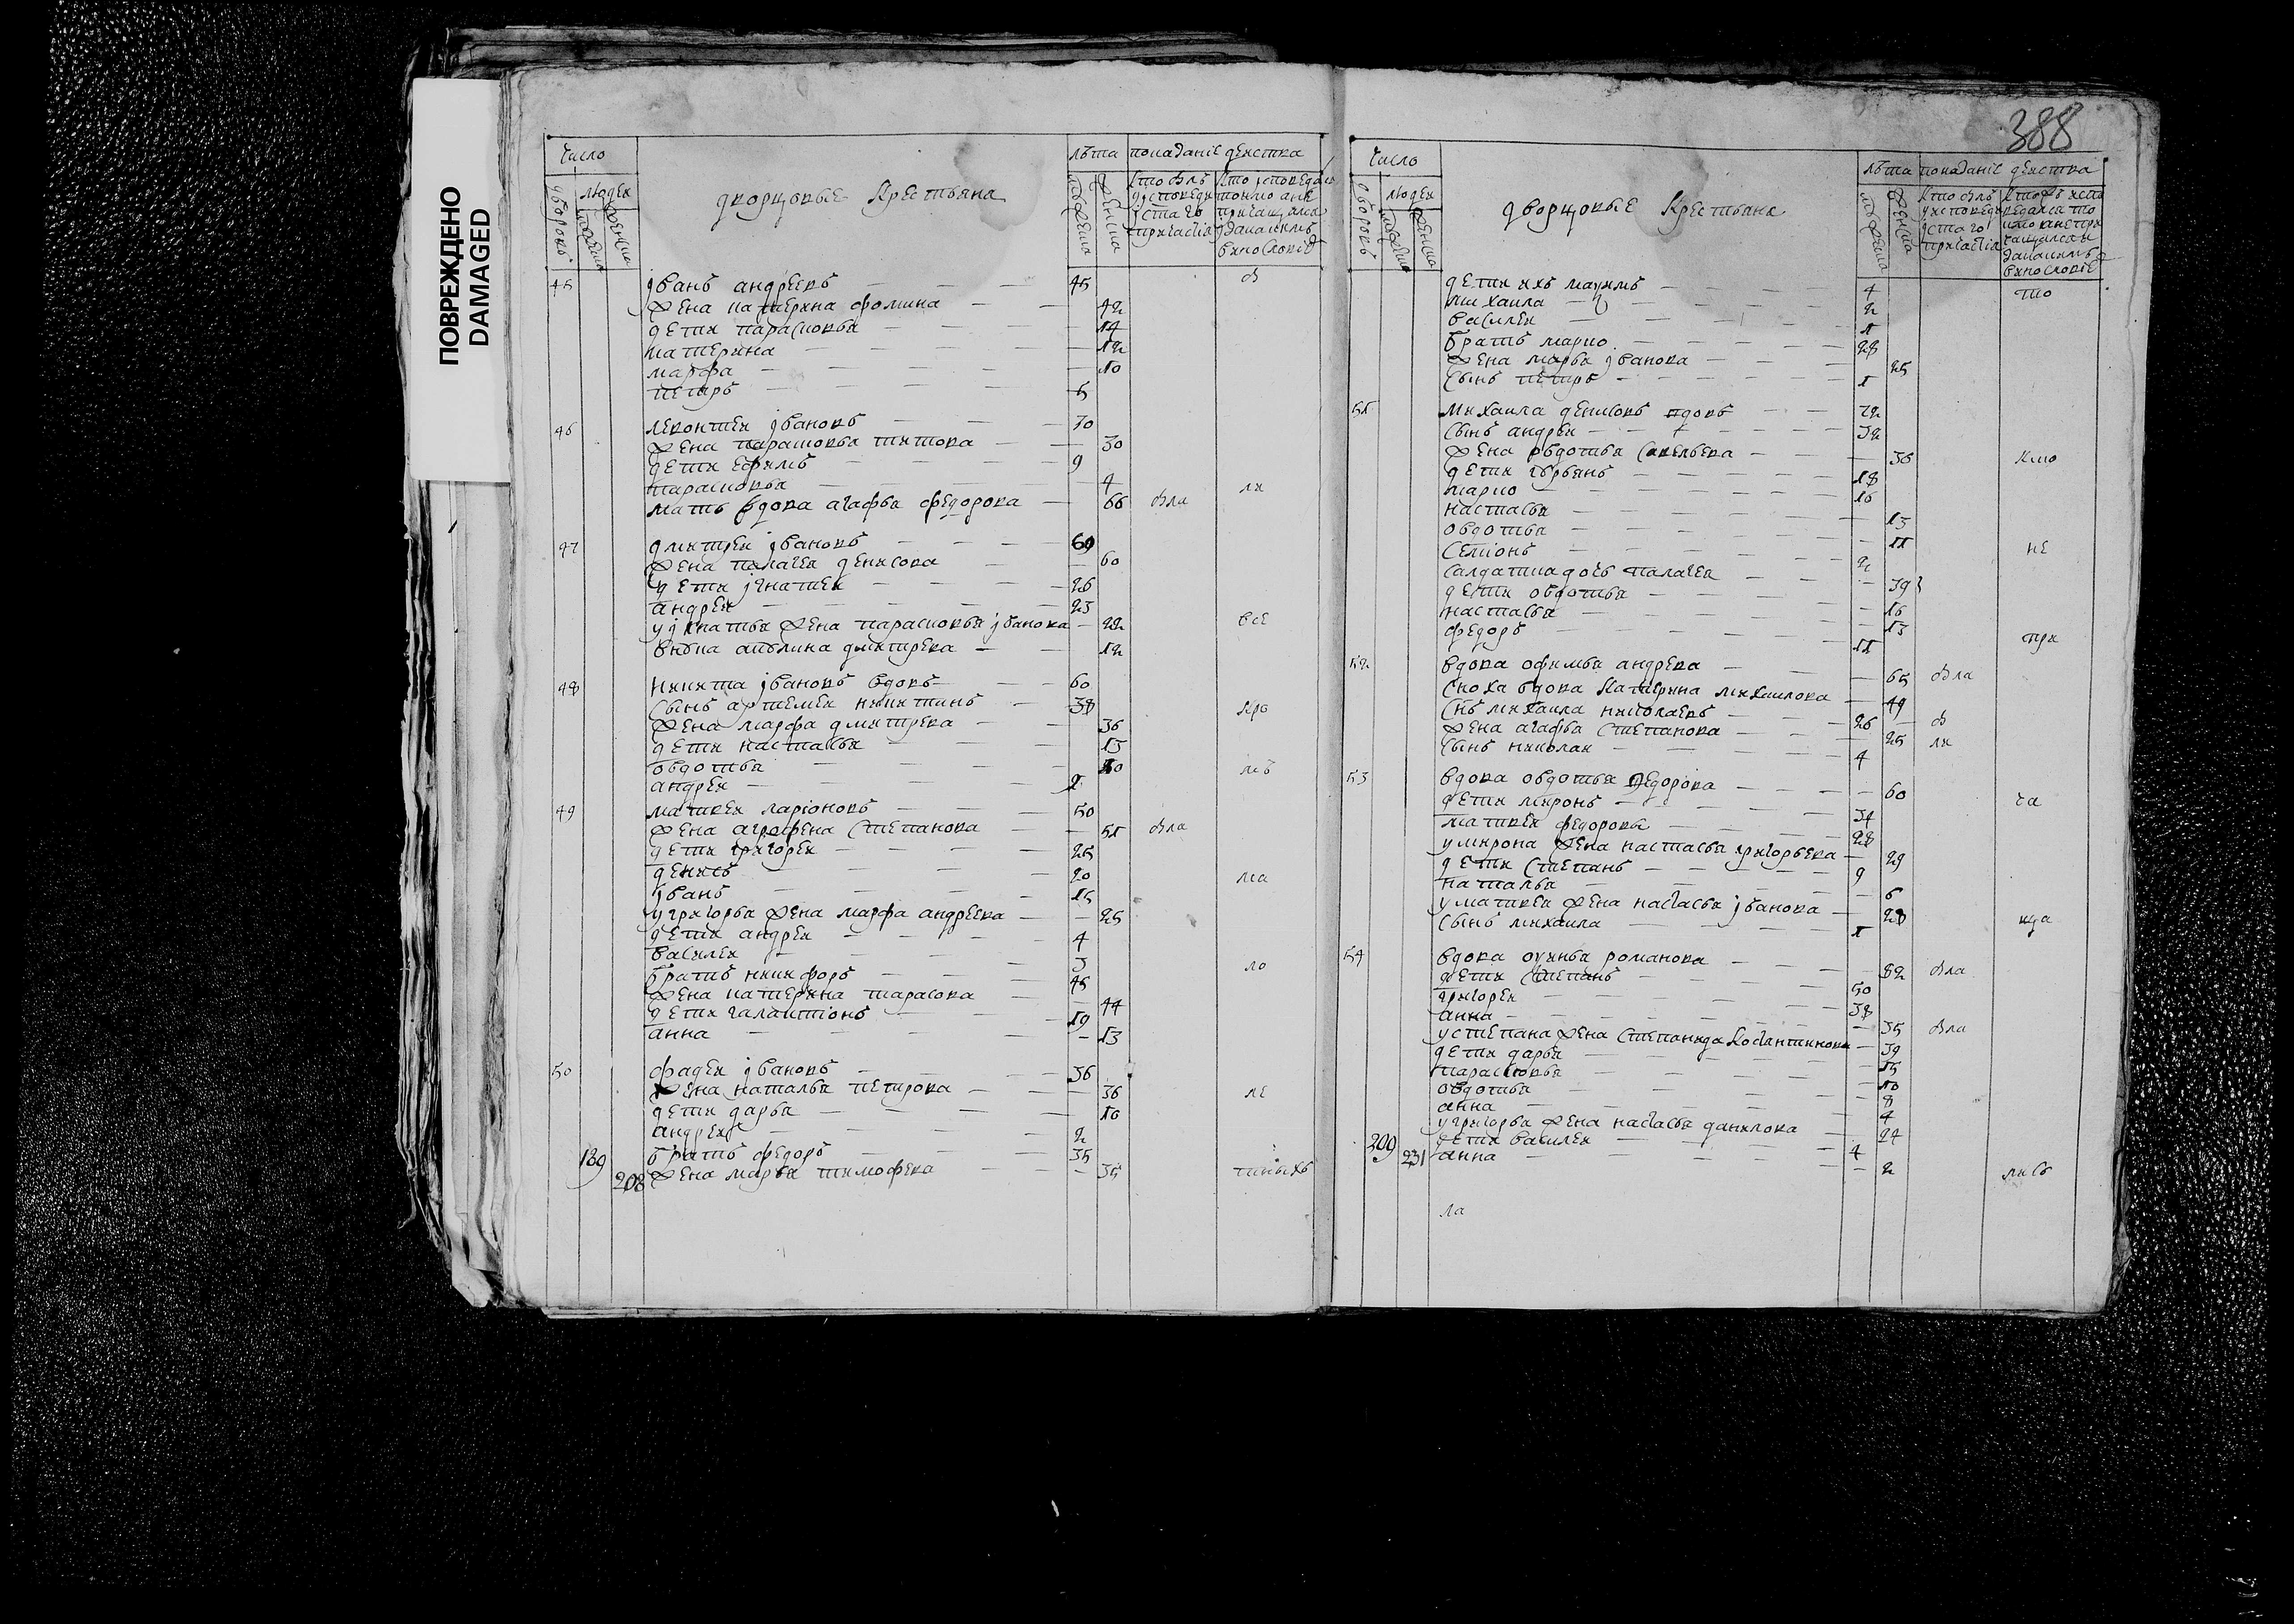 ПОВРЕЖДЕНО
DAMAGED
388
число
людей
дворовъ
дворцовые крестьяня
лѣта
показаніе действа
45 іванъ андреевъ 45
жена катерина фомина 42
дети парасковья 14
катерина 12
марфа 10
петръ 5
46 левонтей івановъ 30
жена парасковья титова 30
дети ефимъ 9
парасковья 4 ли
мать вдова агафья федорова 66 была
47 дмитрей івановъ 60
жена палагея денисова 60
дети ігнатей 26
андрей 23
у ігнатья жена парасковья іванова 22 все
внука акилина дмитрева 12
48 никита івановъ вдовъ 60
сынъ артемей никитинъ 38
жена марфа дмитрева 36 кро
дети настасья 13
овдотья 10 мѣ
андрей
49 матвей ларіоновъ 50
жена агрофена степанова 51 была
дети григорей 25
денисъ 20 ма
іванъ 15
у григорья жена марфа андреева 25
дети андрей 4
василей 3
братъ никифоръ 45 ло
жена катерина тарасова 44
дети галактіонъ 19
анна 13
50 фадей івановъ 36
жена наталья петрова 36 ле
дети дарья 10
андрей 2
189 братъ федоръ 35
208 жена марья тимофева 35 тныхъ
число
людей
дворовъ
дворцовые крестьяня
лѣта показаніе действа
дети ихъ мауимъ 4 то
михаила 2
василей 1
братъ марко 28
жена марья іванова 25
сынъ петръ 1
51 михаила денисовъ вдовъ 72
сынъ андрей 32
жена овдотья савельева 36 кмо
дети 18
марко 16
настасья 13
овдотья 11
семіонъ 2 не
салдатка дочь палагея 39
дети овдотья 16
настасья 13
федоръ 11 при
52 вдова офимья андрева 65 была
сноха вдова катерина михаилова 49
снъ михаила николаевъ 26 б
жена агафья степанова 25 ли
сынъ николай 4
53 вдова овдотья федорова 60
дети миронъ 34 ча
матвей федоровы 28
у мирона жена настасья григорьева 29
дети степанъ 9
наталья 6
у матвея жена настасья іванова 28
сынъ михаила 1 ща
54 вдова оуинья романова 82 была
дети степанъ 50
григорей 38
анна 35 была
у степана жена степанида костантинова 39
дети дарья 15
парасковья 10
овдотья 8
анна 4
у григорья жена настасья данилова 24
209 дети василей 4
231 анна 2 лисъ
ла